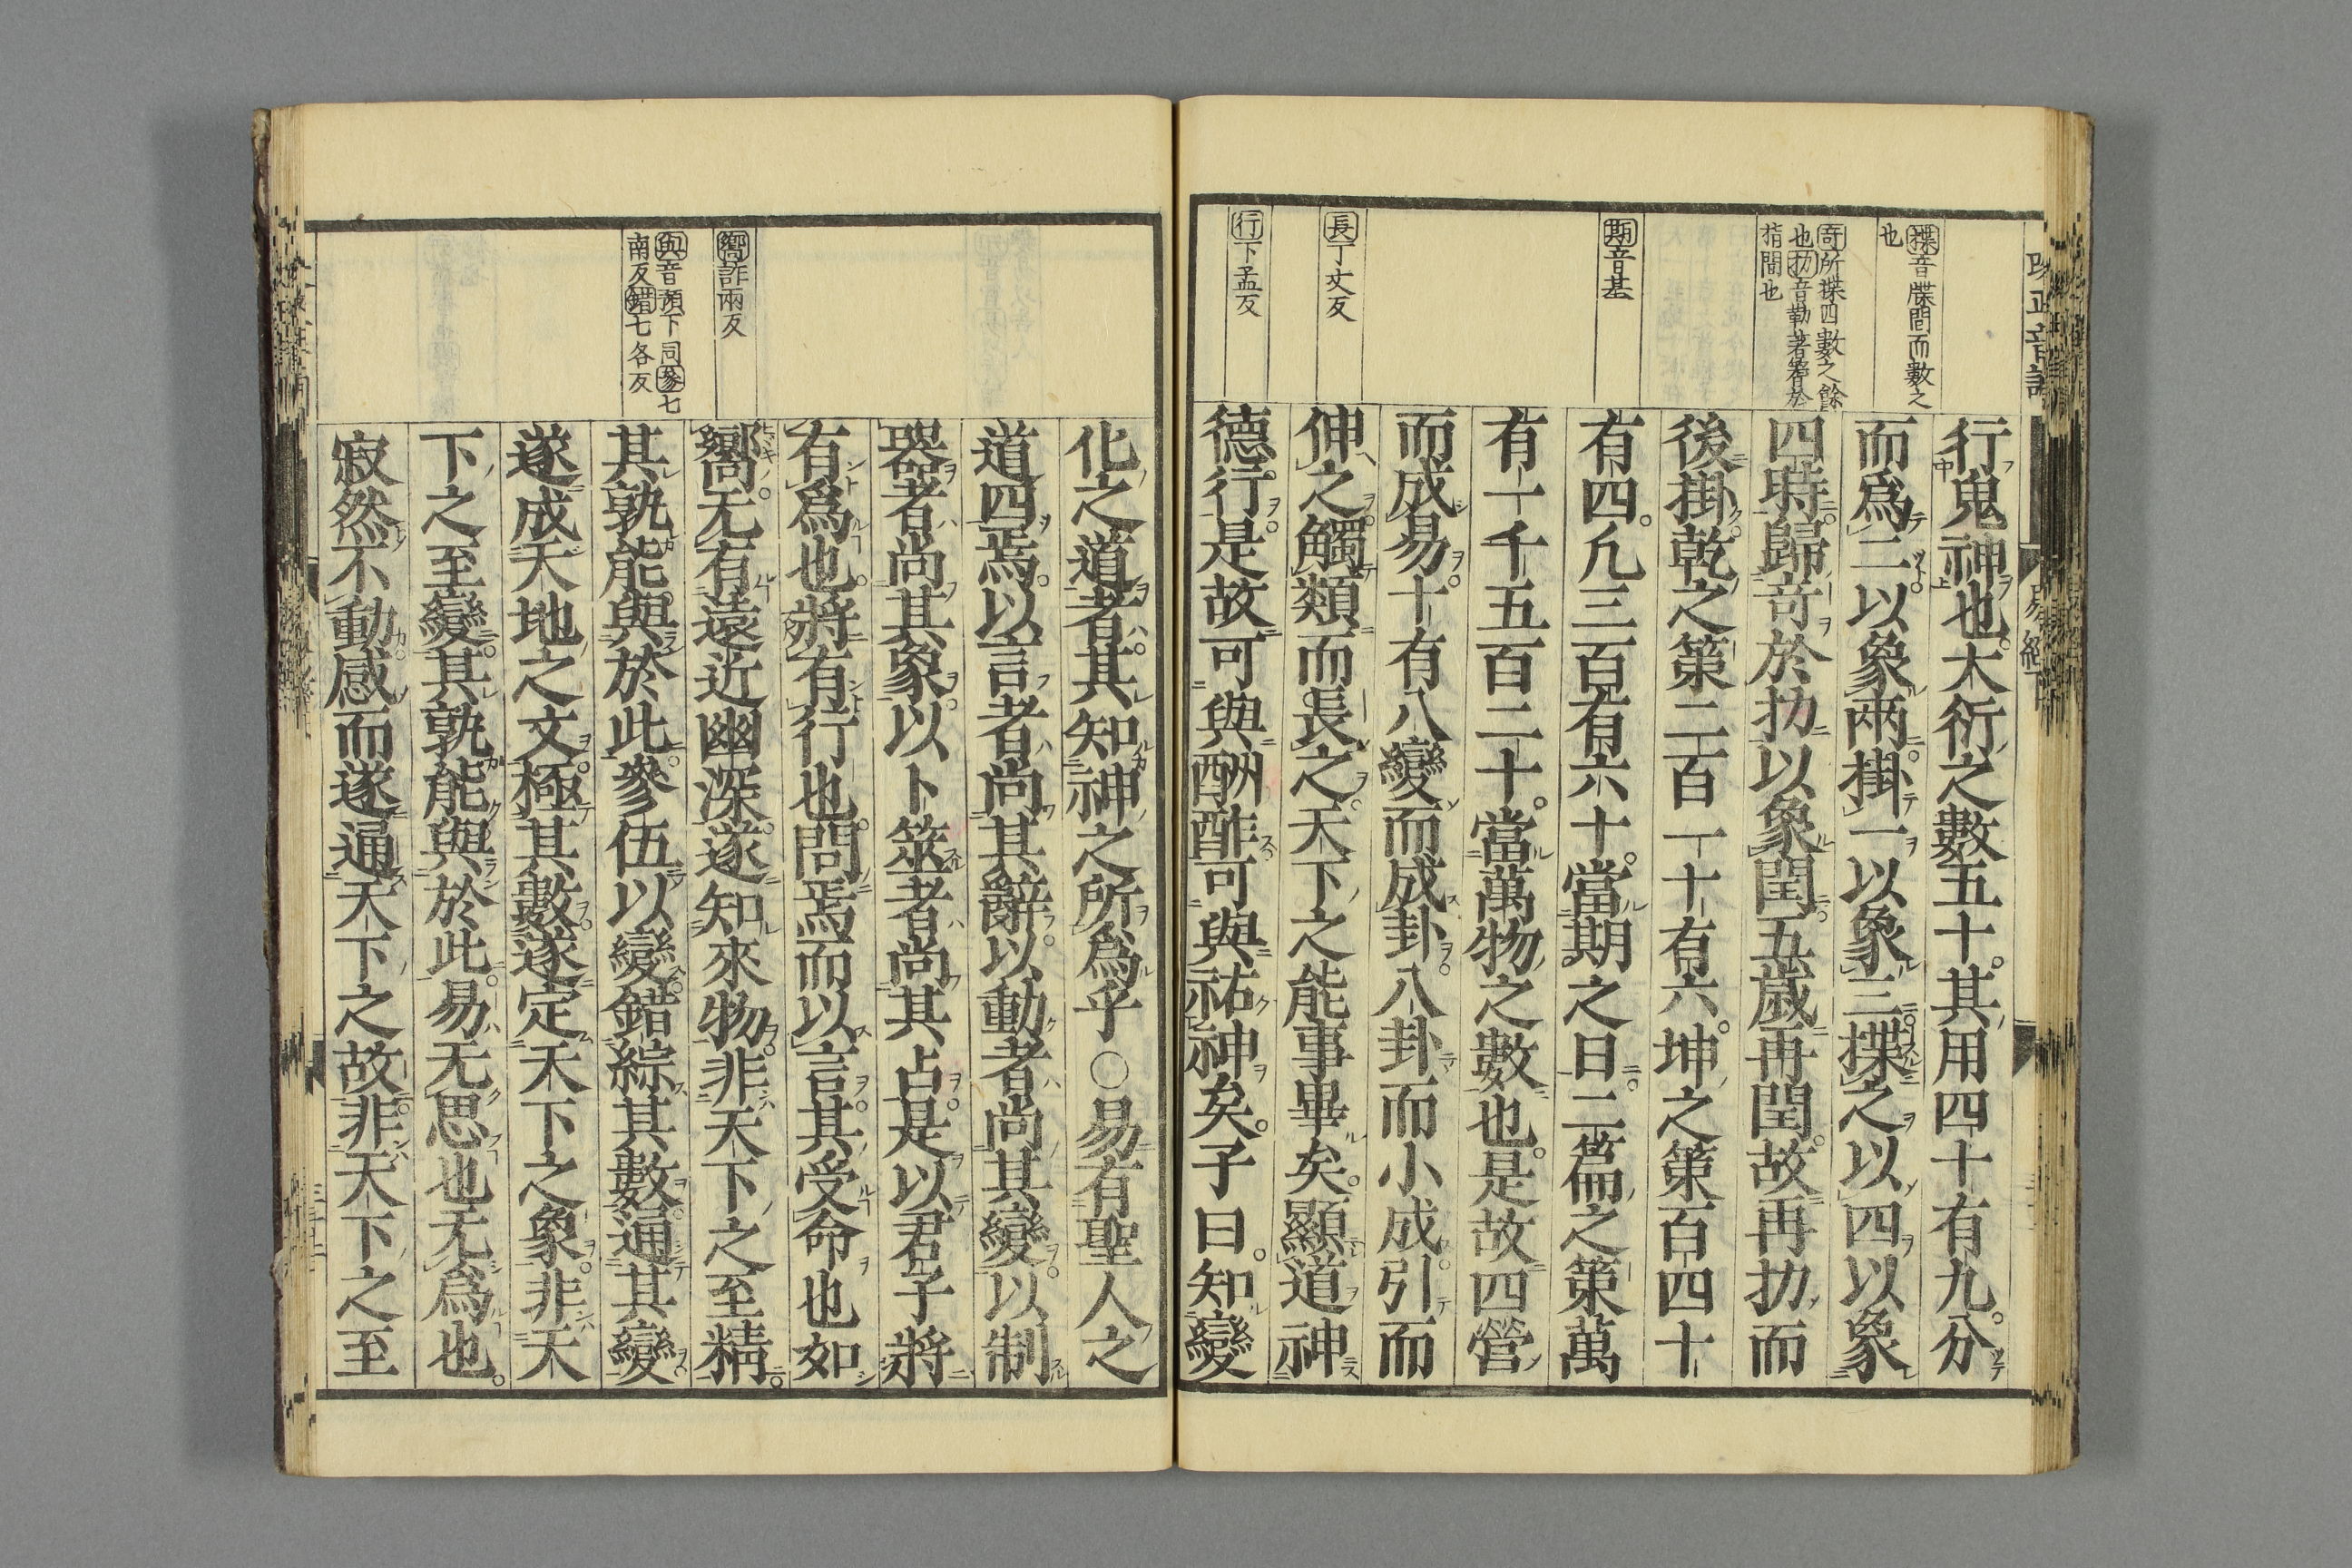 揲音牒間而數之
也
奇所揲四數之餘
也扐音勒著䇲於
指間也
期音基
長丁丈反
行下孟反
行鬼神也大衍之數五十其用四十有九分
而爲二以象兩掛一以象三揲之以四以象
四時歸奇於扐以象閏五歲再閏故再扐而
後掛乾之策二百一十有六坤之策百四十
有四凡三百有六十當期之日二篇之策萬
有一千五百二十當萬物之數也是故四營
而成易十有八變而成卦八卦而小成引而
伸之觸類而長之天下之能事畢矣顯道神
德行是故可與酬酢可與祐神矣子曰知變
嚮許兩反
與音預下同參七
南反錯七各反
化之道者其知神之所爲乎○易有聖人之
道四焉以言者尚其辭以動者尚其變以制
器者尚其象以卜筮者尚其占是以君子將
有爲也將有行也問焉而以言其受命也如
嚮无有遠近幽深遂知來物非天下之至精
其孰能與於此參伍以變錯綜其數通其變
遂成天地之文極其數遂定天下之象非天
下之至變其孰能與於此易无思也无爲也
寂然不動感而遂通天下之故非天下之至